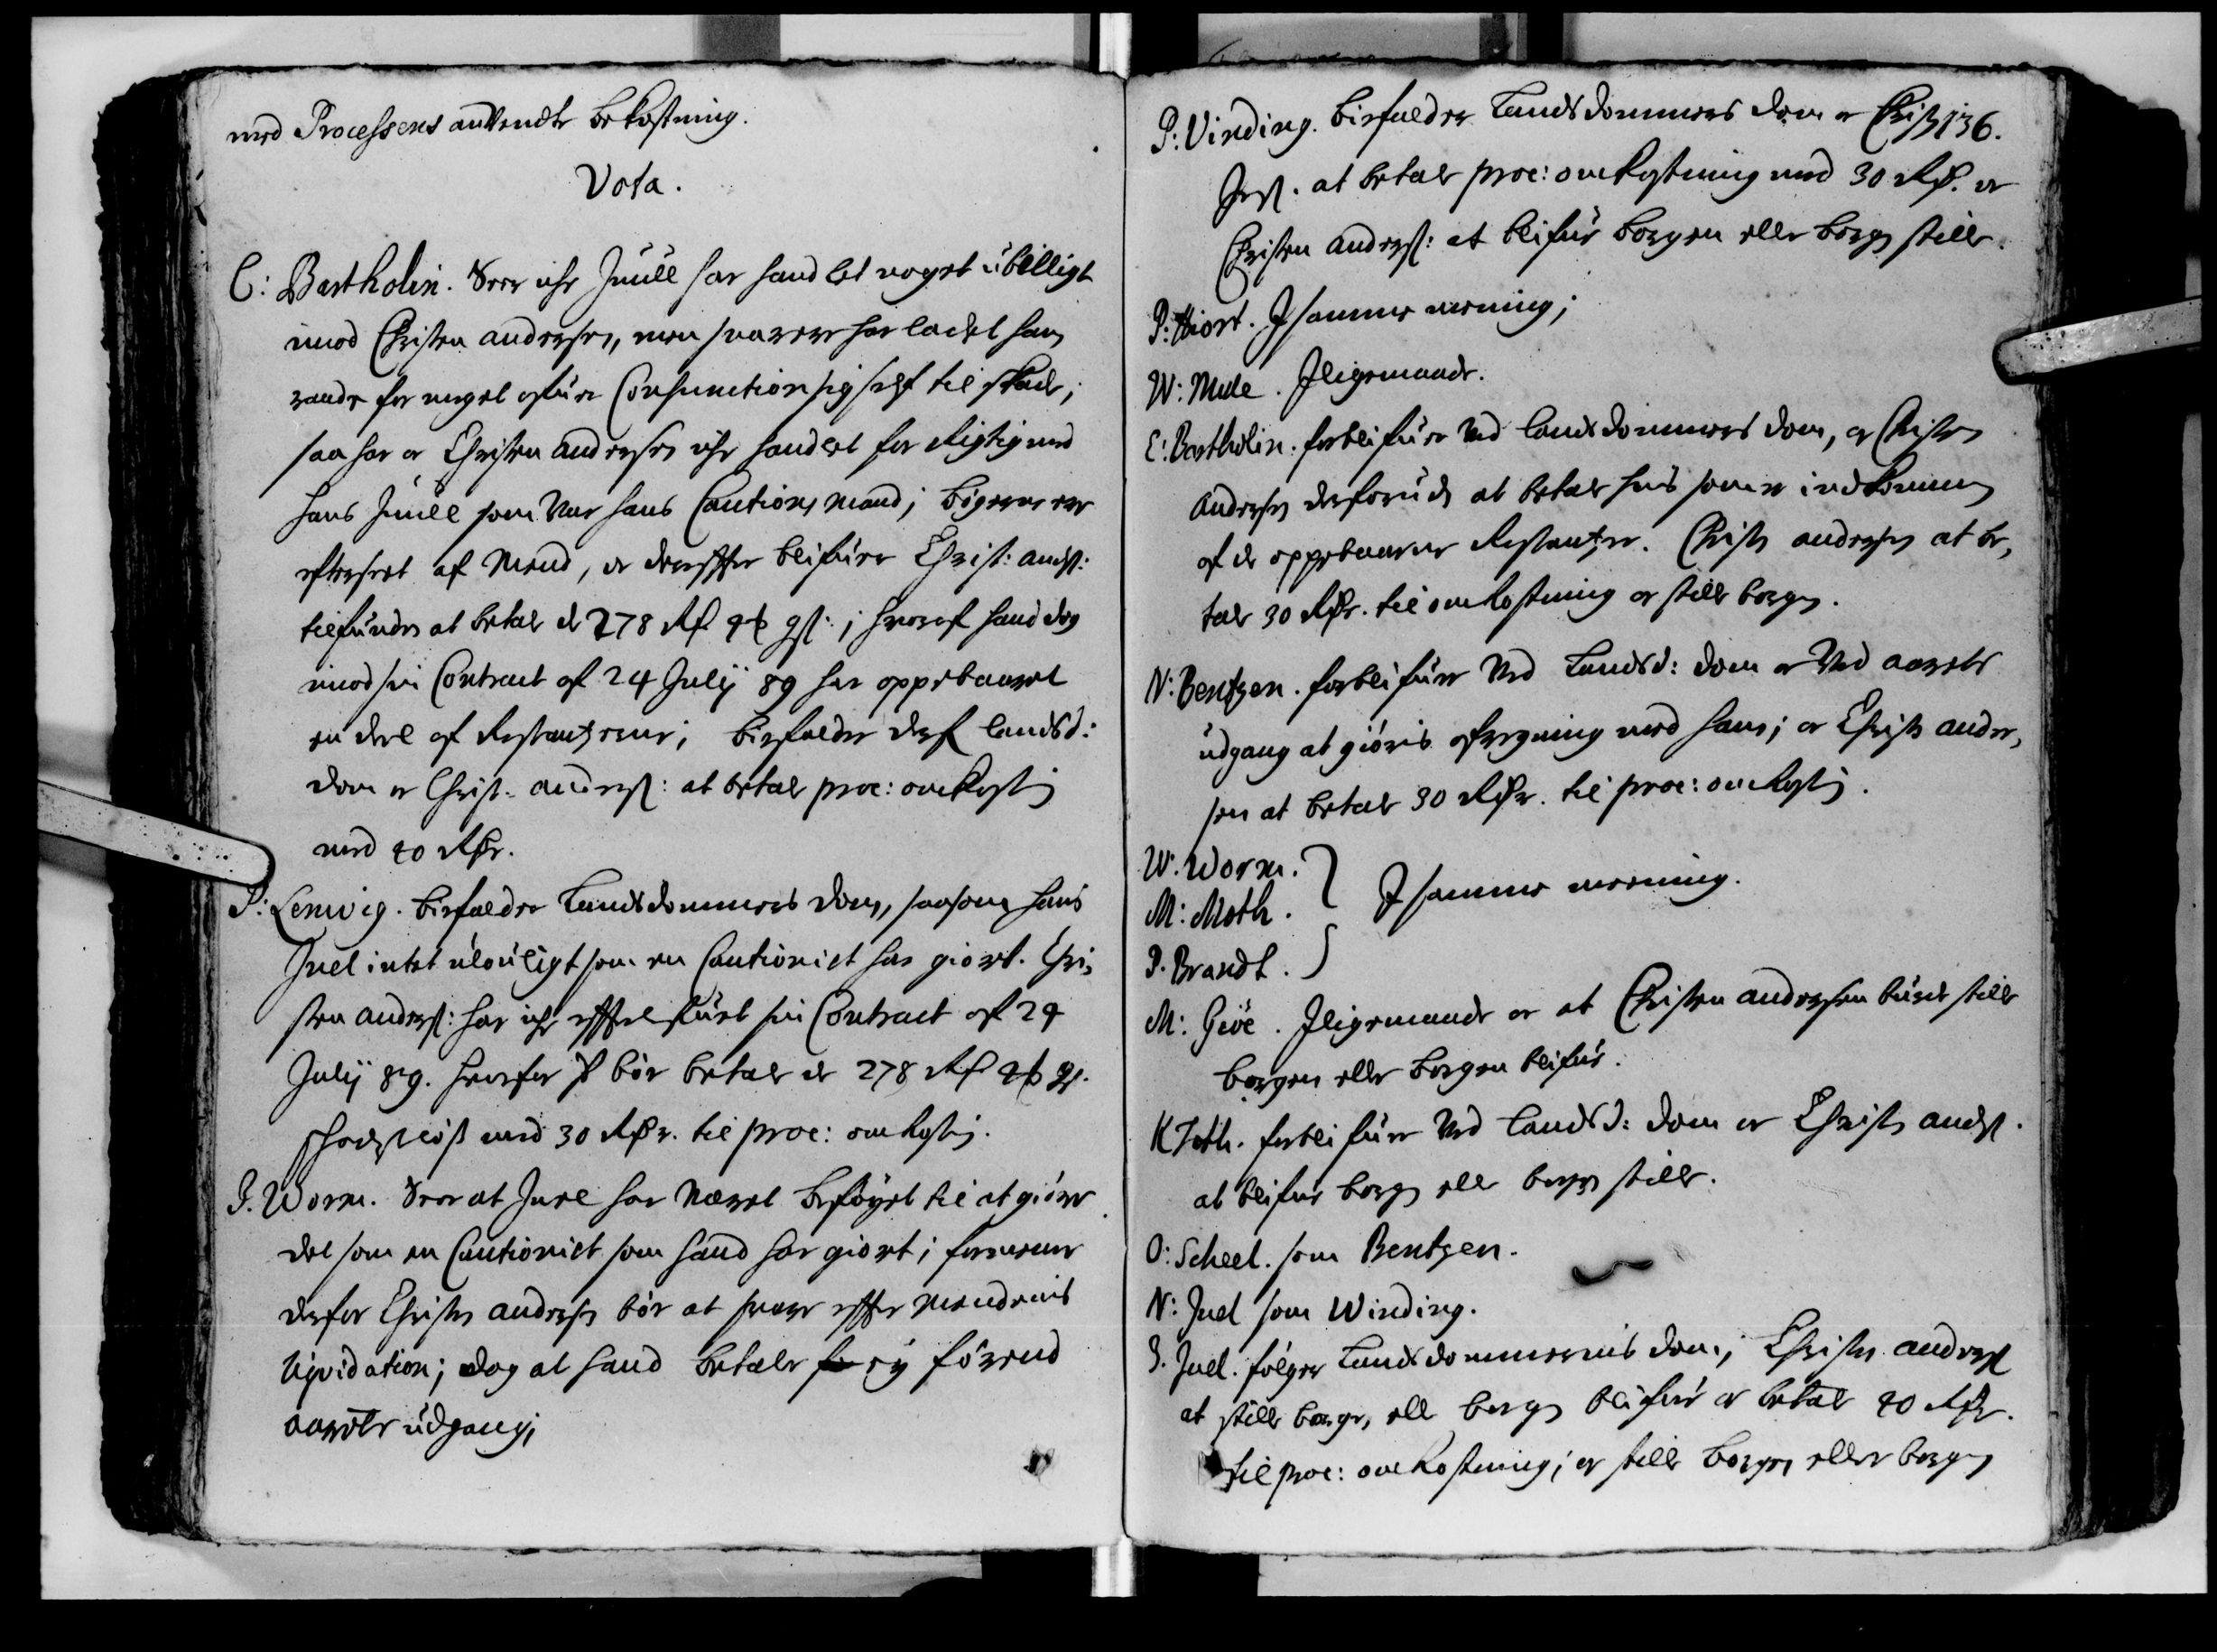 med Processens anvendte bekostning.
Vota.
C: Bartholin. Seer iche Juull har handlet noget ubilligt
imod Christen andersen, men snarere har ladet ham
raade for meget ofuer Conjunction sig self til skade;
saa har oc Christen andersen iche handlet for Rigtig med
hans Juull som var hans Cautions mand; bøgerne ere
efterseet af Mend, oc derefter blifuer Christ: anders:
tilfunden at betale de 278 Rd 4 ; hvoraf hand dog
imod sin Contract af 24 Julij 89 har oppebaaret
en deel af Restantzerne; bifalder derfor landsd:
dom oc Christ. anders: at betale proc: omkostning
med 40 Rdr.
P: Lemvig. bifalder Landsdommers dom, saasom hans
Juel intet ulouligt som en Cautionist har giort. Chri-
sten anders: har iche efterlefuet sin Contract af 24
Julij 89. hvorfor hand bør betale de 278 Rd 4
skadesløs med 30 Rdr. til proc: omkostning.
J. Worm. Seer at Juel har været beføyet til at giøre
det som en Cautionist som hand har giort; formener
derfor Christen andersen bør at svare efter mendenis
liqvidation; dog at hand betaler ey førend
aarets udgang;
P: Vinding. bifalder Landsdommers dom oc Christ 136.
Jens. at betale proc: omkostning med 30 Rdr. oc
Christen anders: at blifue borgen eller borgen stille.
P: Hiort. J samme mening;
W: Mule. Jligemaade.
C: Bartholin. forblifuer ved landsdommers dom, oc Christen
andersen desforuden at betale huis som er indkommen
af de oppebaarne Restantzer. Christen andersen at be-
tale 30 Rdr. til omkostning oc stille borgen.
N: Bentzen. forblifuer ved Landsd: dom oc ved aarets
udgang at giøris afregning med ham; oc Christen ander-
sen at betale 30 Rdr. til proc: omkostning.
W. Worm.
M: Moth. J samme meening.
P. Brandt.
M: Giöe. Jligemaade oc at Christen andersen burde stille
borgen eller borgen blifue.
K Toth. forblifuer ved Landsd: dom oc Christen anders.
at blifue borgen eller borgen stille.
O: Scheel. som Bentzen.
N: Juel som Winding.
J. Juel. følger Landsdommernis dom; Christen anders
at stille borgen, eller borgen blifue oc betale 40 Rdr.
til proc: omkostning; oc stille borgen eller borgen